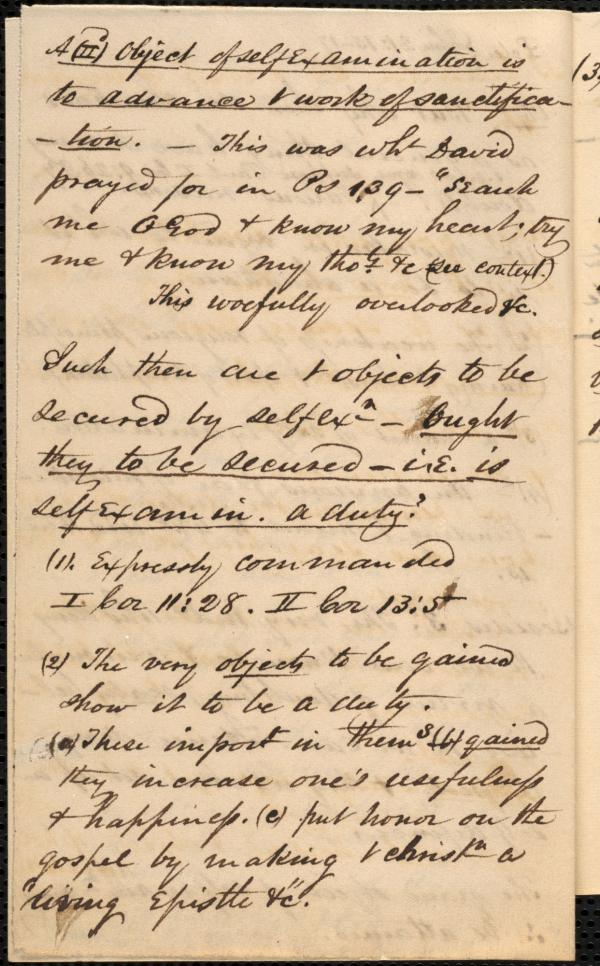 A (III^d) object of self Examination is
to advance t work of sanctifica-
-tion. — This was wh^t David
prayed for in Ps 139 — "Search
me O God & know my heart; try
me & know my tho^ts &c (see context.)
This woefully overlooked &c.
Such then are t objects to be
secured by self ex^n — Ought
they to be secured — i.E. is
self Examin. a duty?
(1). Expressly commanded
I Cor 11:28. II Cor 13:5
(2) The very objects to be gained
show it to be a duty.
(a) These import in them^s (b) gained
they increase one's usefulness
& happiness. (c) put honor on the
gospel by making t christ^n a
"living Epistle &c".
(3